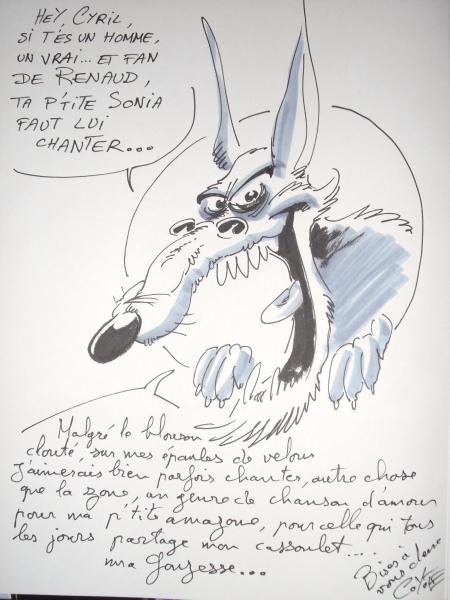 HEY, CYRIL,
SI T'ES UN HOMME,
UN VRAI... ET FAN
DE RENAUD,
TA P'TITE SONIA
FAUT LUI
CHANTER...
Malgré le blouson
clouté, sur mes épaules de velour
J'aimerais bien parfois chanter, autre chose
que la zone, un genre de chanson d'amour
pour ma p'tite amazone, pour celle qui tous
les jours partage mon cassoulet...
ma gonzesse...
Bises à
vous deux
COYOTE